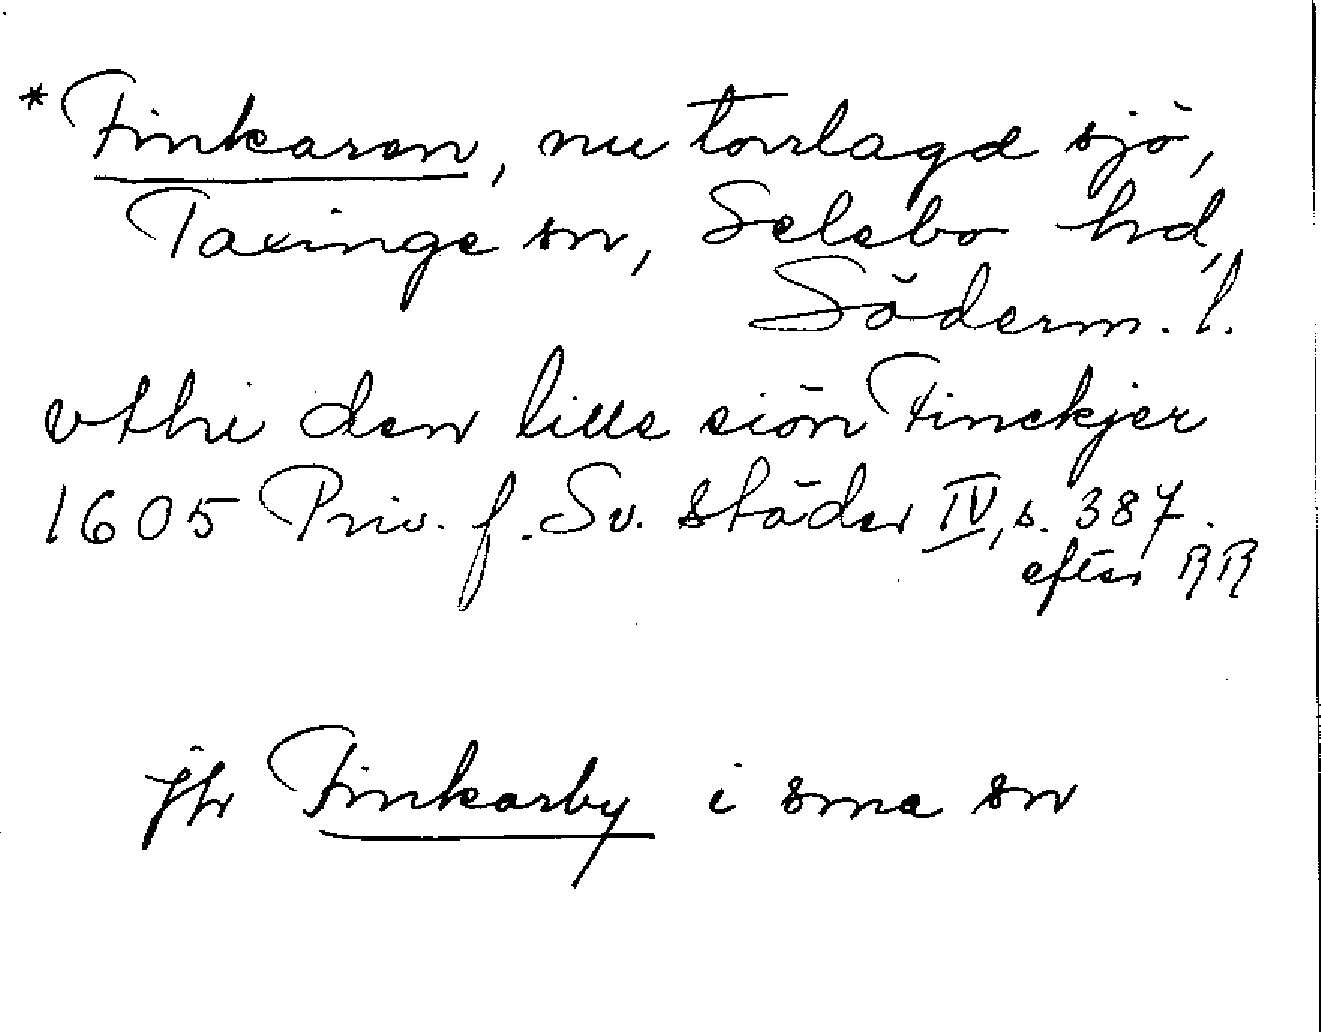 *Finkaren, nu torrlagd sjö,
Taxinge sn, Selebo hd,
Söderm. l.
vthi den lille siön Finckjer
1605 Priv. f. Sv. städer IV, s. 387.
efter RR
jfr Finkarby i sma sn